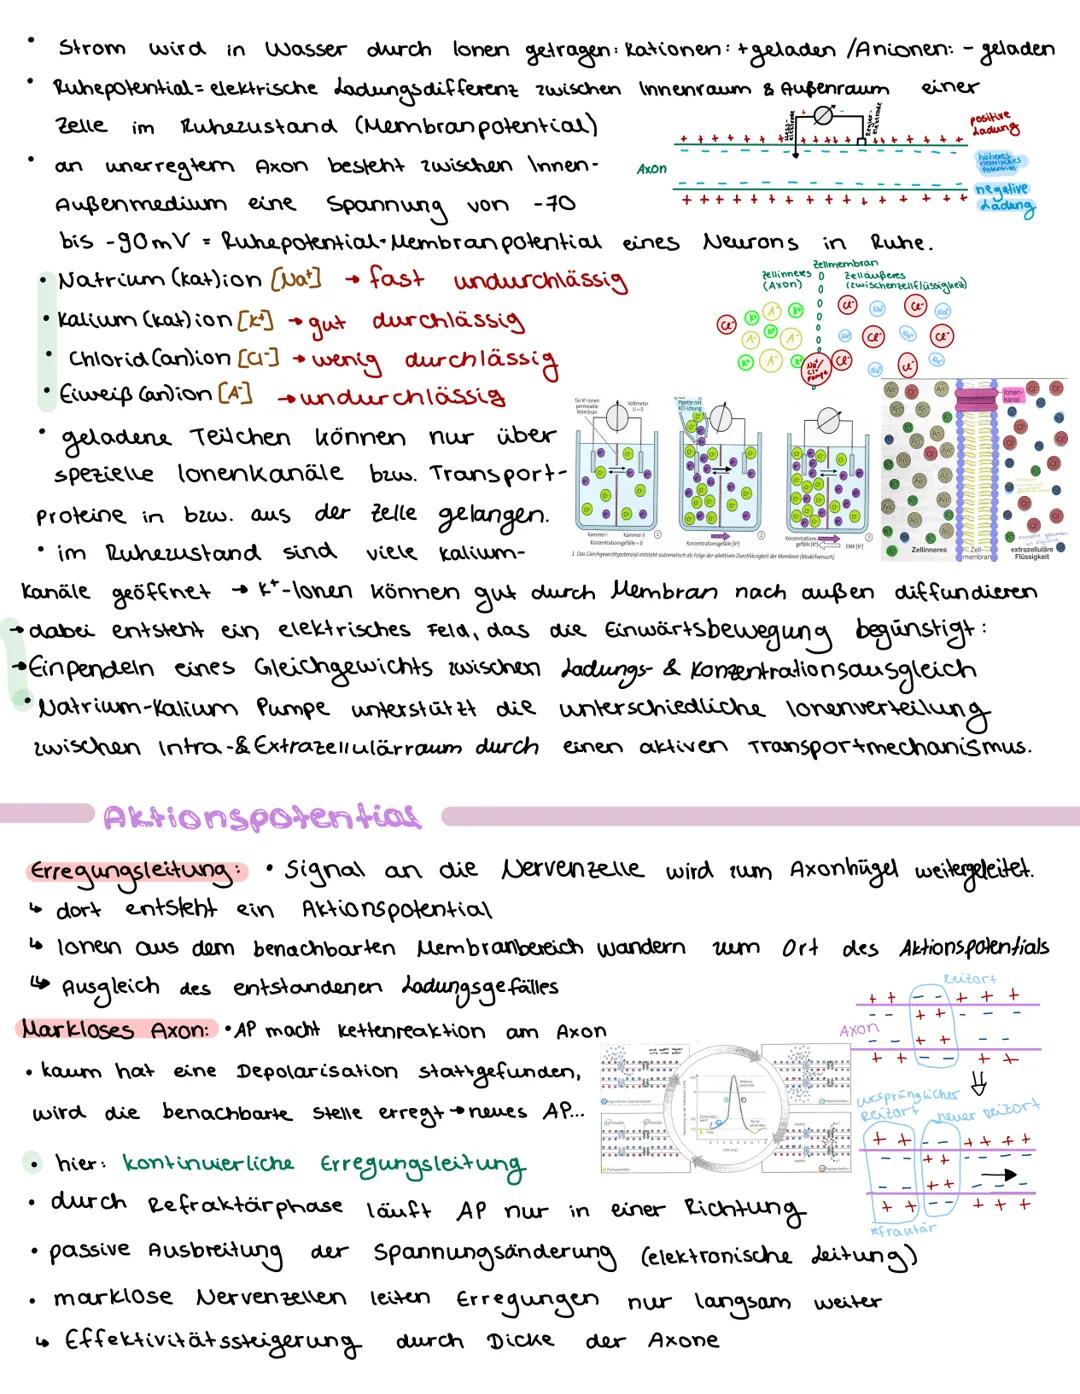 • Strom wird in Wasser durch Ionen getragen: Kationen: + geladen / Anionen: - geladen
• Ruhepotential = elektrische Ladungsdifferenz zwischen Innenraum & Außenraum einer
Zelle im Ruhezustand (Membranpotential)
• an unerregtem Axon besteht zwischen Innen-
Außenmedium eine Spannung von -70
bis -90mV = Ruhepotential-Membranpotential eines Neurons in Ruhe.
positive
Ladung
Axon
höheres
elektrisches
Potential
negative
Ladung
• Natrium (kat)ion [Na+] → fast undurchlässig
• Kalium (kat)ion [K+] → gut durchlässig
• Chlorid (an)ion [Cl-] → wenig durchlässig
• Eiweiß (an)ion [A-] → undurchlässig
Zellmembran
Zellinneres
(Axon)
Zelläußeres
(Zwischenzellflüssigkeit)
Na+/
Cl-
Pumpe
• geladene Teilchen können nur über
spezielle Ionenkanäle bzw. Transport-
proteine in bzw. aus der Zelle gelangen.
• im Ruhezustand sind viele Kalium-
Kanäle geöffnet → K+-Ionen können gut durch Membran nach außen diffundieren
für K+-Ionen
permeable
Membran
Voltmeter
U = 0
Pipette mit
KCl-Lösung
Kammer I Kammer II
Konzentrationsgefälle = 0
Konzentrationsgefälle [K+]
Konzentrations-
gefälle [K+]
EMK [K+]
1 Das Gleichgewichtspotenzial entsteht automatisch als Folge der selektiven Durchlässigkeit der Membran (Modellversuch).
Ionen-
kanal
Zellinneres
Zell-
membran
extrazelluläre
Flüssigkeit
→ dabei entsteht ein elektrisches Feld, das die Einwärtsbewegung begünstigt:
→ Einpendeln eines Gleichgewichts zwischen Ladungs- & Konzentrationsausgleich
• Natrium-Kalium Pumpe unterstützt die unterschiedliche Ionenverteilung
zwischen Intra-& Extrazellulärraum durch einen aktiven Transportmechanismus.
Aktionspotential
Erregungsleitung: • Signal an die Nervenzelle wird zum Axonhügel weitergeleitet.
↳ dort entsteht ein Aktionspotential
↳ Ionen aus dem benachbarten Membranbereich wandern zum Ort des Aktionspotentials
↳ Ausgleich des entstandenen Ladungsgefälles
Reizort
Axon
Markloses Axon: • AP macht Kettenreaktion am Axon
• kaum hat eine Depolarisation stattgefunden,
wird die benachbarte Stelle erregt → neues AP...
ursprünglicher
Reizort
neuer Reizort
refraktär
• hier: kontinuierliche Erregungsleitung
• durch Refraktärphase läuft AP nur in einer Richtung
• passive Ausbreitung der Spannungsänderung (elektronische Leitung)
• marklose Nervenzellen leiten Erregungen nur langsam weiter
↳ Effektivitätssteigerung durch Dicke der Axone